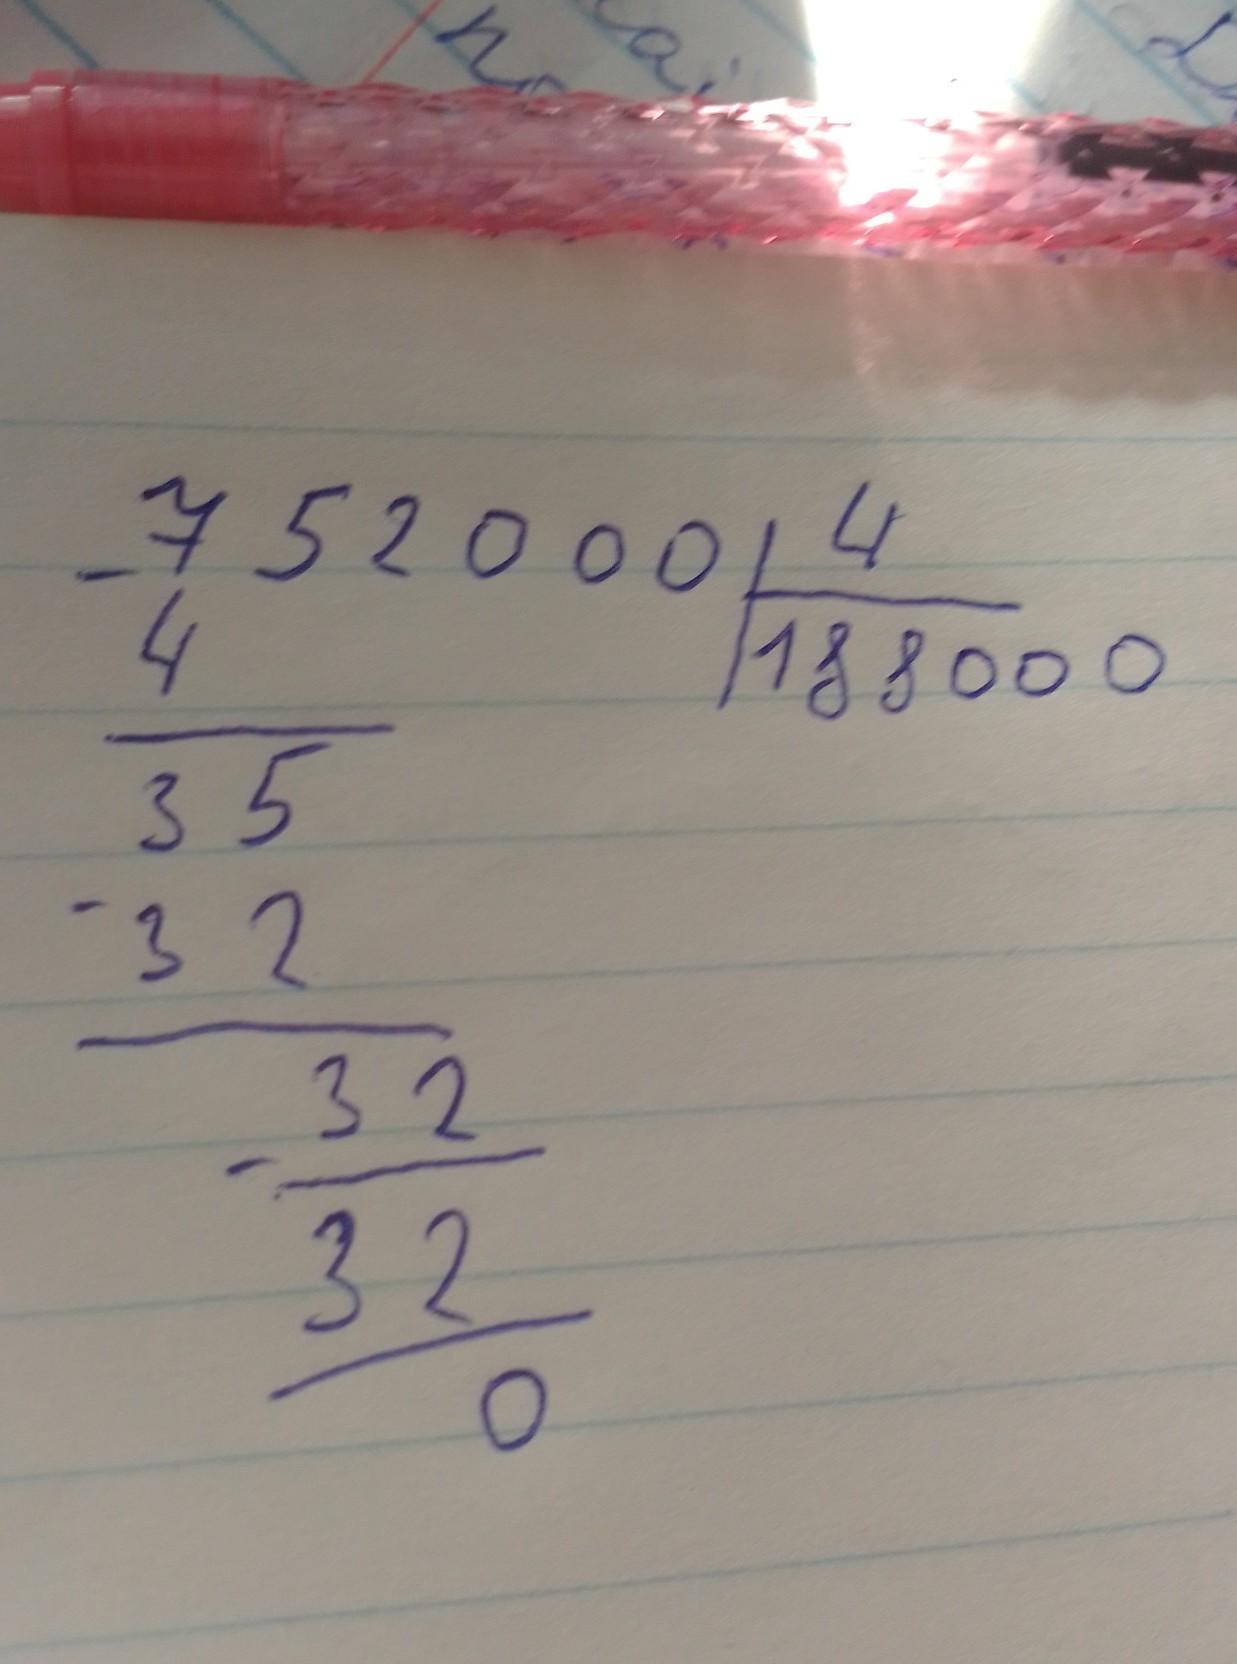 - 752000 | 4
4 | 188000
35
- 32
32
-
32
0